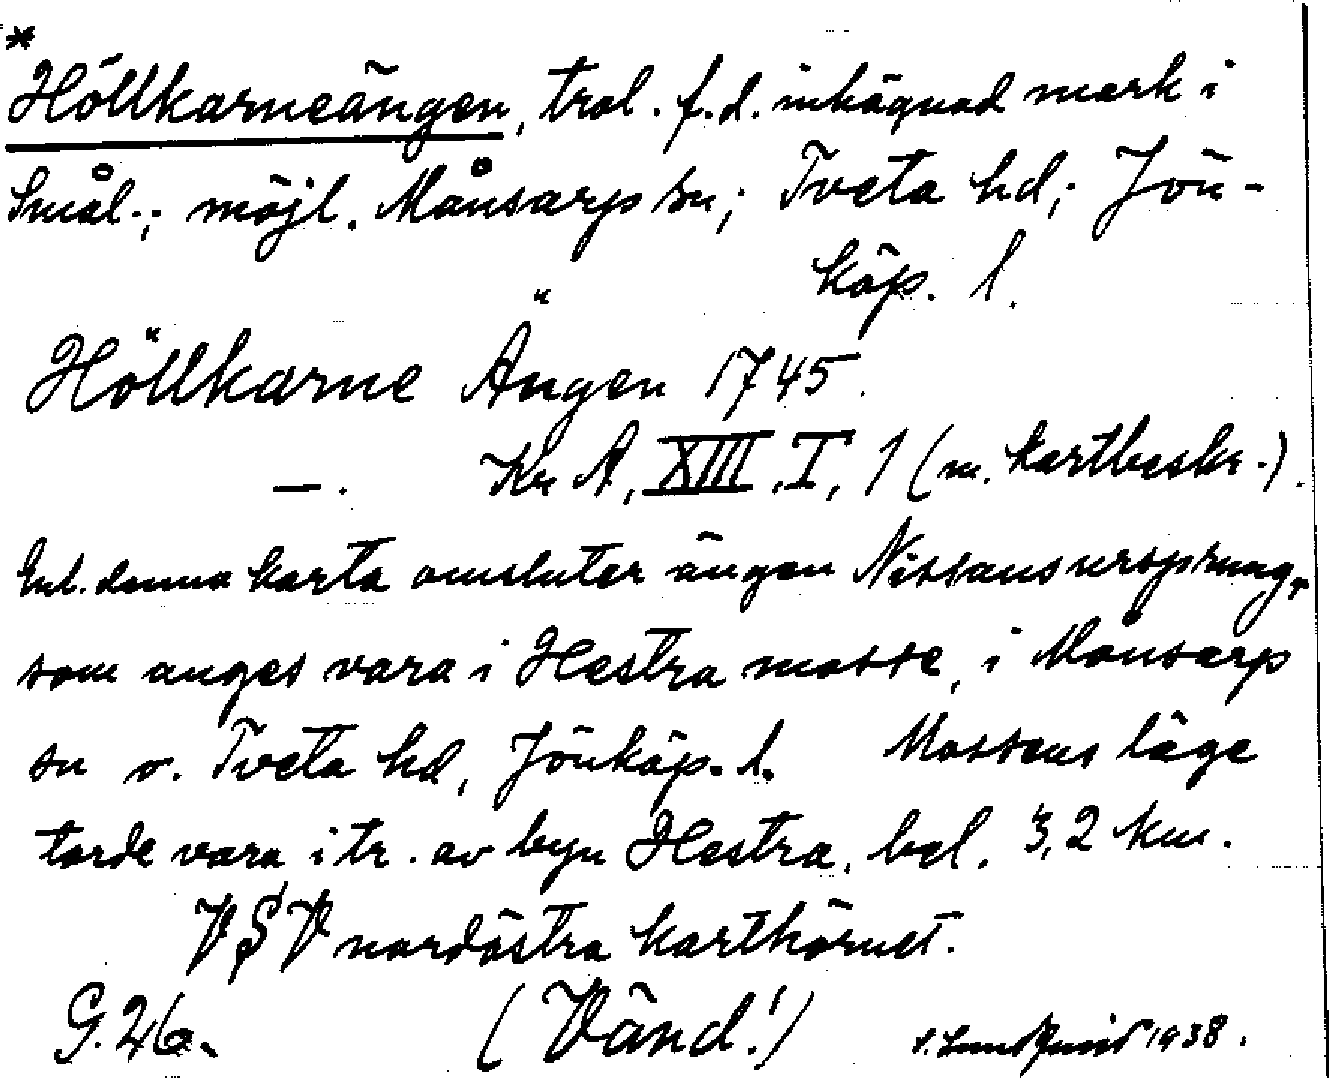 *
Höllkarneängen, trol. f.d. inhägnad mark i
Smål.; möjl. Månsarp sn; Tveta hd; Jön-
köp. l.
Höllkarne Ängen 1745.
—. Kr A, XIII, I, 1 (m. kartbeskr.).
Enl. denna karta omsluter ängen Nissans ursprung,
som anges vara i Hestra mosse, i Månsarp
sn o. Tveta hd, Jönköp. l. Mossens läge
torde vara i tr. av byn Hestra, bel. 3,2 km.
VSV nordöstra karthörnet.
G. 26. (Vänd!) Lundquist 1938.